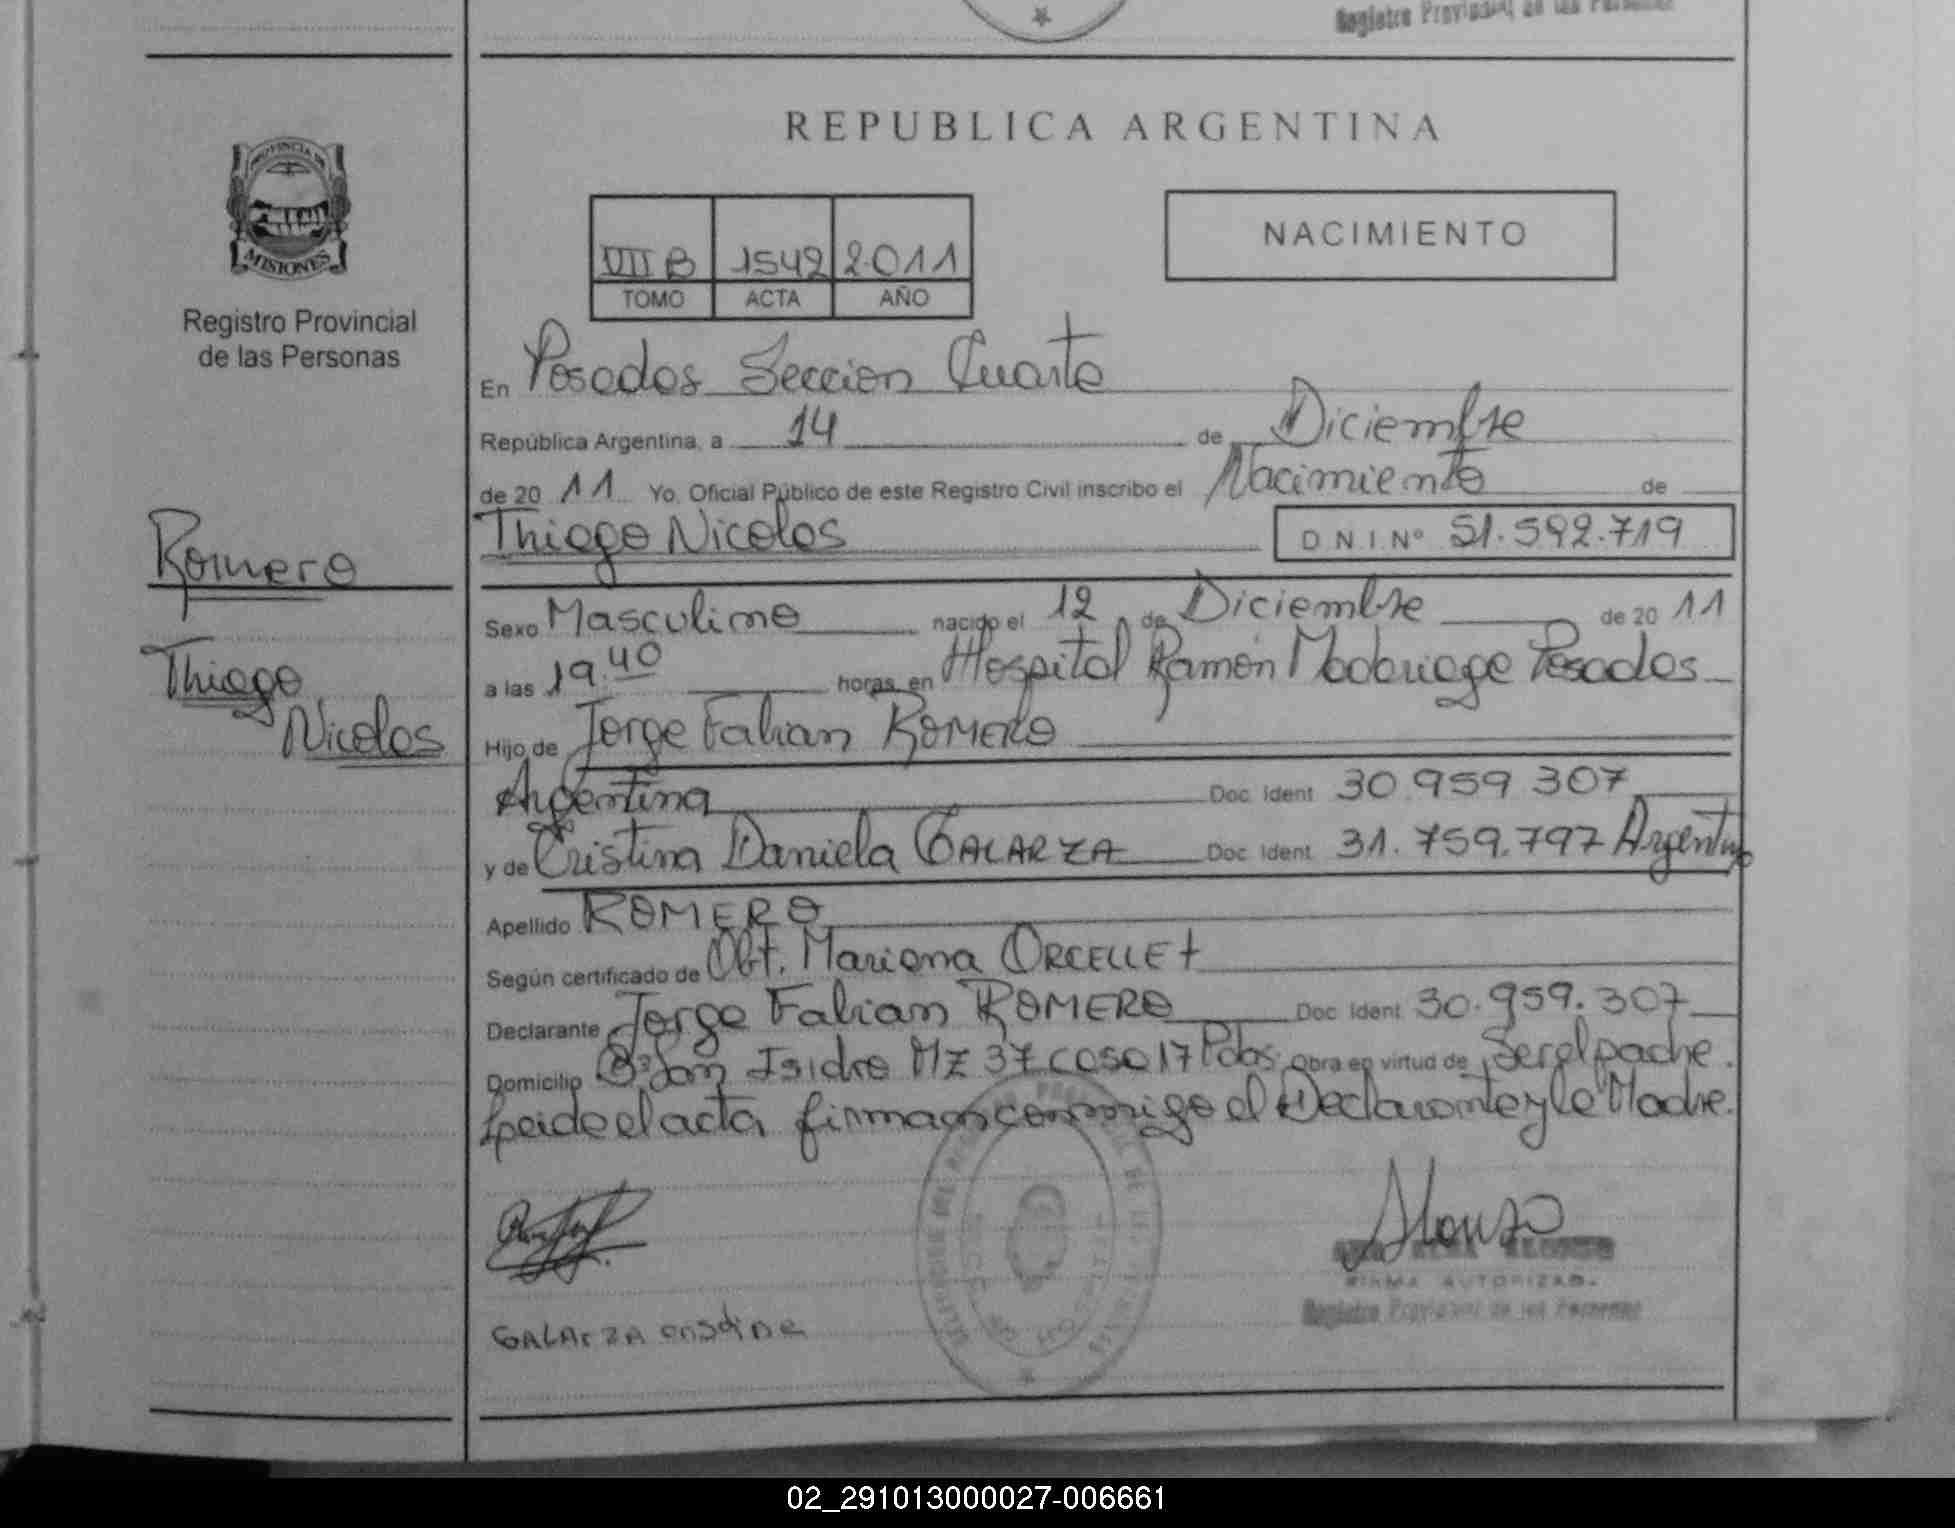 Registro Provincial de las Personas
PROVINCIA DE
MISIONES
Registro Provincial
de las Personas
REPUBLICA ARGENTINA
VIII B 1542 2.011
TOMO ACTA AÑO
NACIMIENTO
En Posadas Seccion Cuarta
República Argentina, a 14 de Diciembre
de 20 11 Yo, Oficial Público de este Registro Civil inscribo el Nacimiento de
Thiago Nicolas D.N.I.Nº 51.592.719
Romero
Thiago
Nicolas
Sexo Masculino nacido el 12 de Diciembre de 20 11
a las 19.40 horas, en Hospital Ramón Madariaga Posadas
Hijo de Jorge Fabian ROMERO
Argentina Doc Ident 30.959 307
y de Cristina Daniela GALARZA Doc Ident 31.759.797 Argentina
Apellido ROMERO
Según certificado de Obt. Mariana ORCELLET
Declarante Jorge Fabian ROMERO Doc Ident 30.959.307
Domicilio Bº San Isidro Mz 37 casa 17 Pdas. Obra en virtud de Ser el padre.
Leida el acta, firman conmigo el Declarante y la Madre.
Alonso
ALONSO
FIRMA AUTORIZAD.
Registro Provincial de las Personas
GALARZA cristina
02_291013000027-006661